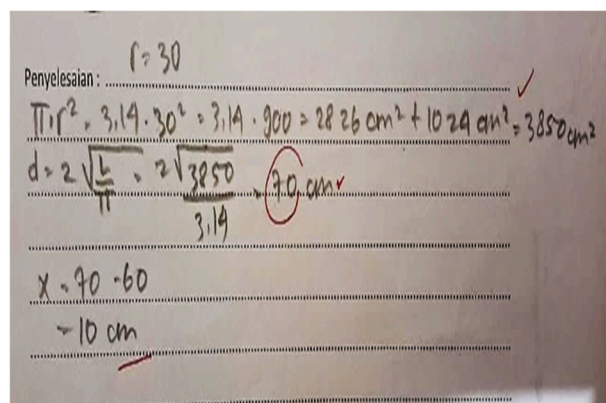 r = 30
Penyelesaian :
π.r² = 3,14 . 30² = 3,14 . 900 = 2826 cm² + 1024 cm² = 3850 cm²
d = 2 √(L/π) = 2 √(3850/3,14) = 70 cm
x = 70 - 60
= 10 cm